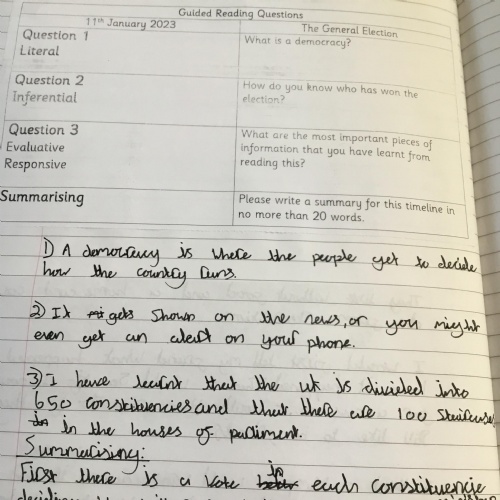 Guided Reading Questions
11th January 2023
The General Election
Question 1
Literal
What is a democracy?
Question 2
Inferential
How do you know who has won the
election?
Question 3
Evaluative
Responsive
What are the most important pieces of
information that you have learnt from
reading this?
Summarising
Please write a summary for this timeline in
no more than 20 words.
1) A democracy is where the people get to decide
how the country runs.
2) It gets shown on the news, or you might
even get an alert on your phone.
3) I have learnt that the uk is divided into
650 constituencies and that there are 100
in the houses of parliment.
Summarising:
First there is a vote in each constituencie